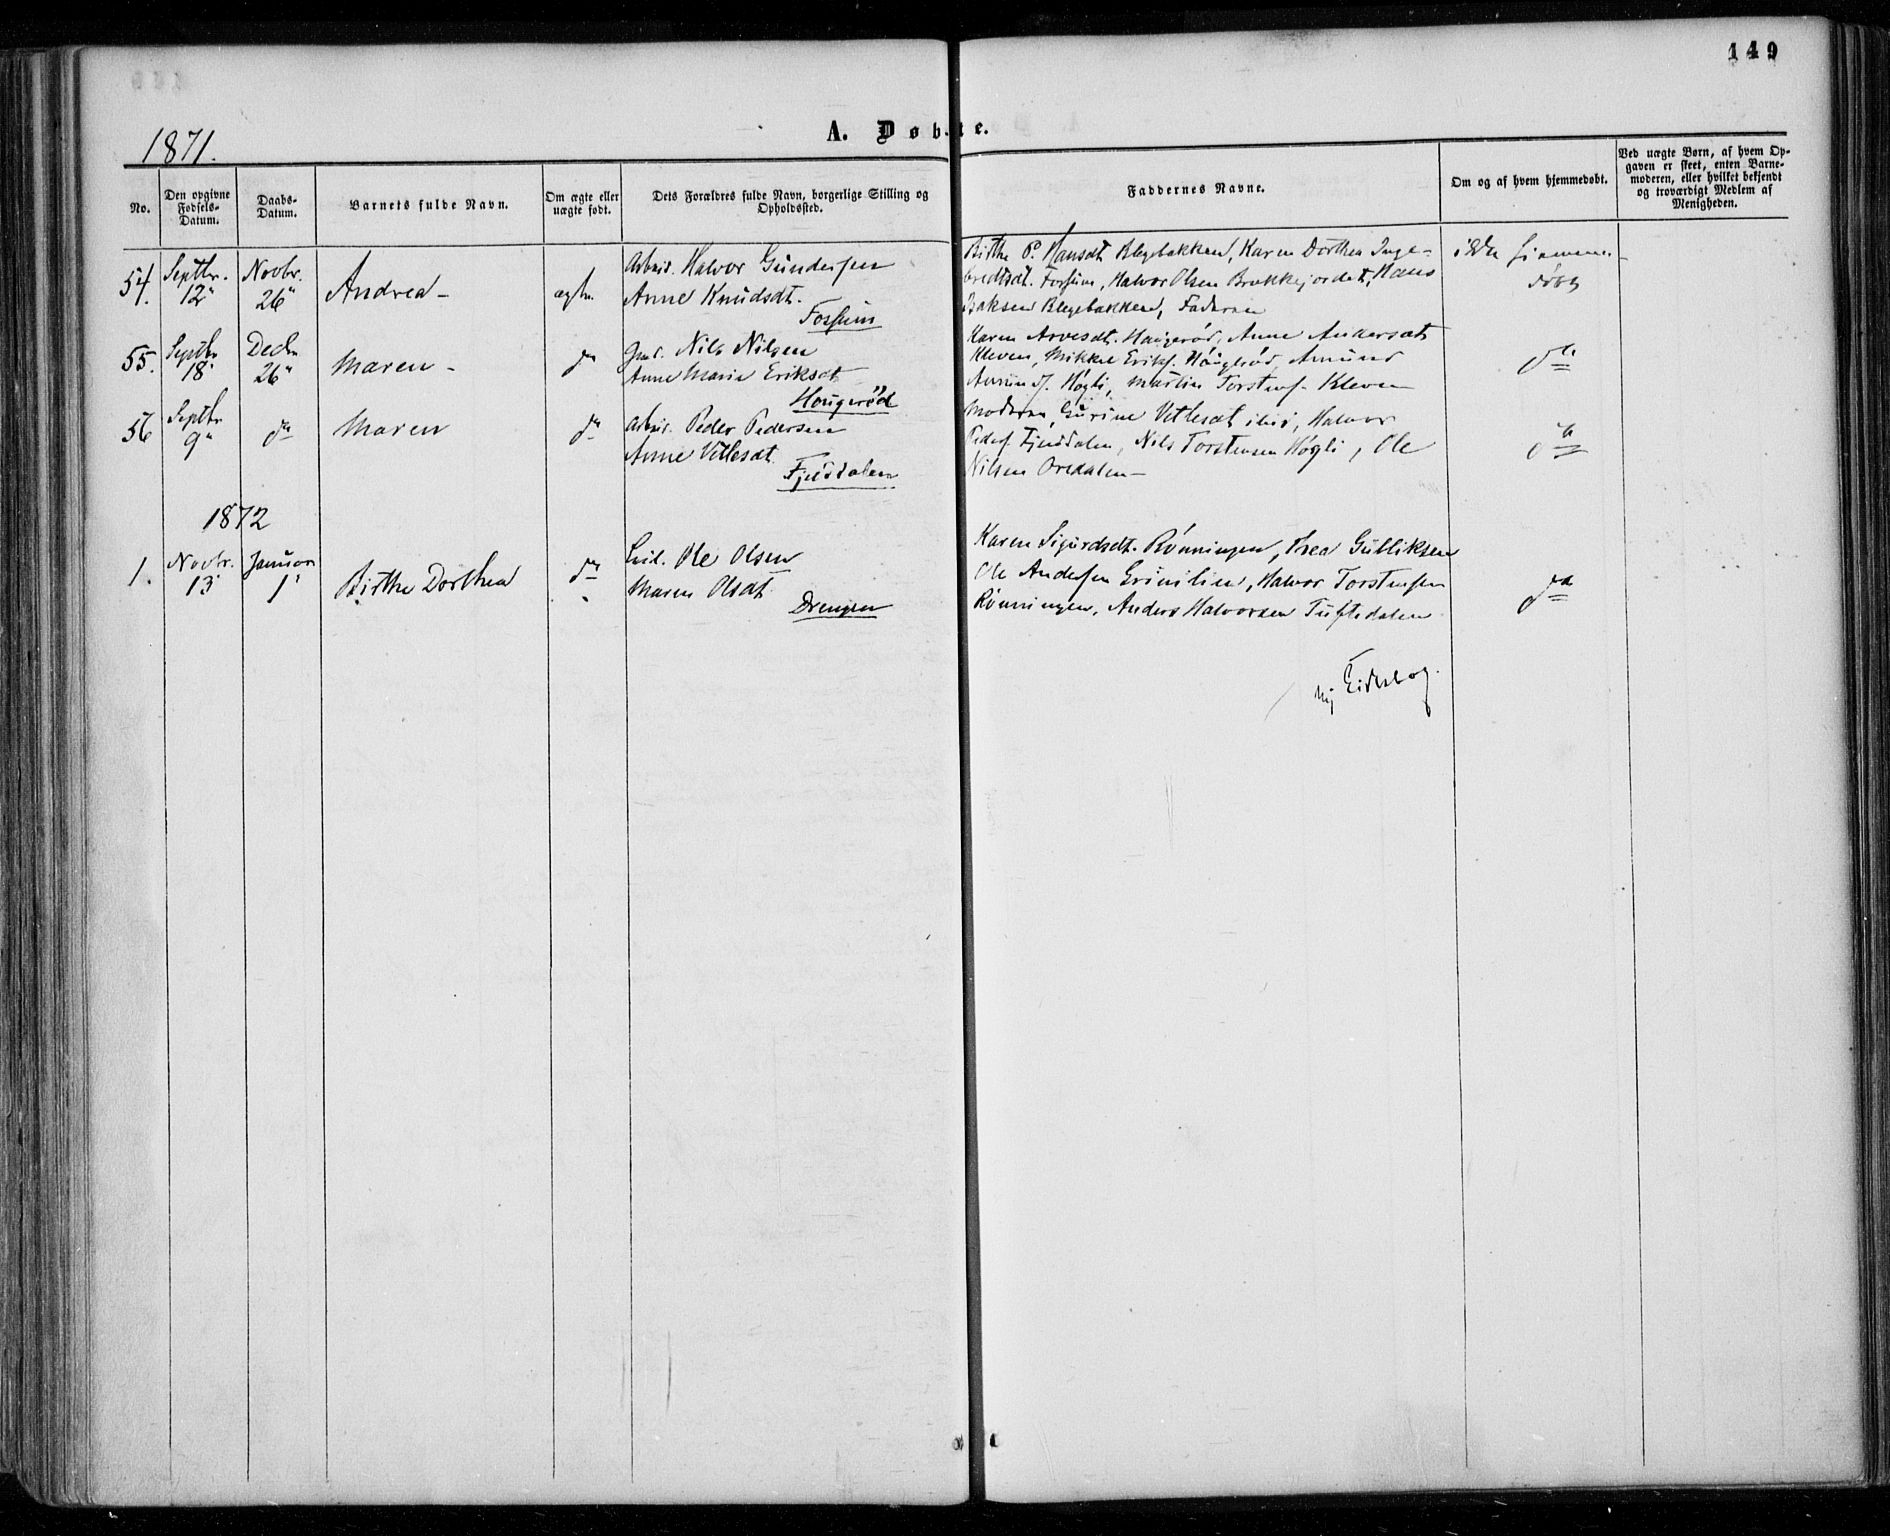 149
A. Døbte.
1871.
No.
Den opgivne Fødsels-Datum.
Daabs-Datum.
Barnets fulde Navn.
Om ægte eller uægte født.
Dets Forældres fulde Navn, borgerlige Stilling og Opholdssted.
Faddernes Navne.
Om og af hvem hjemmedøbt.
Ved uægte Børn, af hvem Op-
gaven er skeet, enten Barne-
moderen, eller hvilket bekjendt
og troværdigt Medlem af
Menigheden.
54. Septbr. 12" Novbr. 26" Andrea - ægte
Arbeid. Halvor Gundersen
Anne Knudsdt.
Fossum
Birthe P. Hansdt Blegebakken, Karen Dorthea Inge-
bredtsdt. Fossum, Halvor Olsen Brekkejordet, Hans
Isaksen Blegebakken, Faderen
ikke hjemme-
døbt
55. Septbr 18" Decbr 26" Maren - do
Nils Nilsen
Anne Maria Eriksdt
Haugerød
Karen Arvesdt. Haugerød, Anne Andersdt
Kleven, Mikkel Eriks. Haugerød, Amund
Amunds. Høgli, Martin Torstens. Kleven
do
56 Septbr 9" do Maren do
Arbeid. Peder Pedersen
Anne Vetlesdt
Fjelddalen
Moderen, Gurine Vetlesdt ibid, Halvor
Peders. Fjelddalen, Nils Torstensen Høgli, Ole
Nilsen Oredalen -
do
1872
1. Novbr. 13 Januar 1" Birthe Dorthea do
Ole Olsen
Maren Olsdt
Drengen
Karen Sigurdsdt. Rønningen, Thea Gulliksen
Ole Andersen Grinilien, Halvor Torstensen
Rønningen, Anders Halvorsen Tuftedalen
do
Ny Kirkebog.